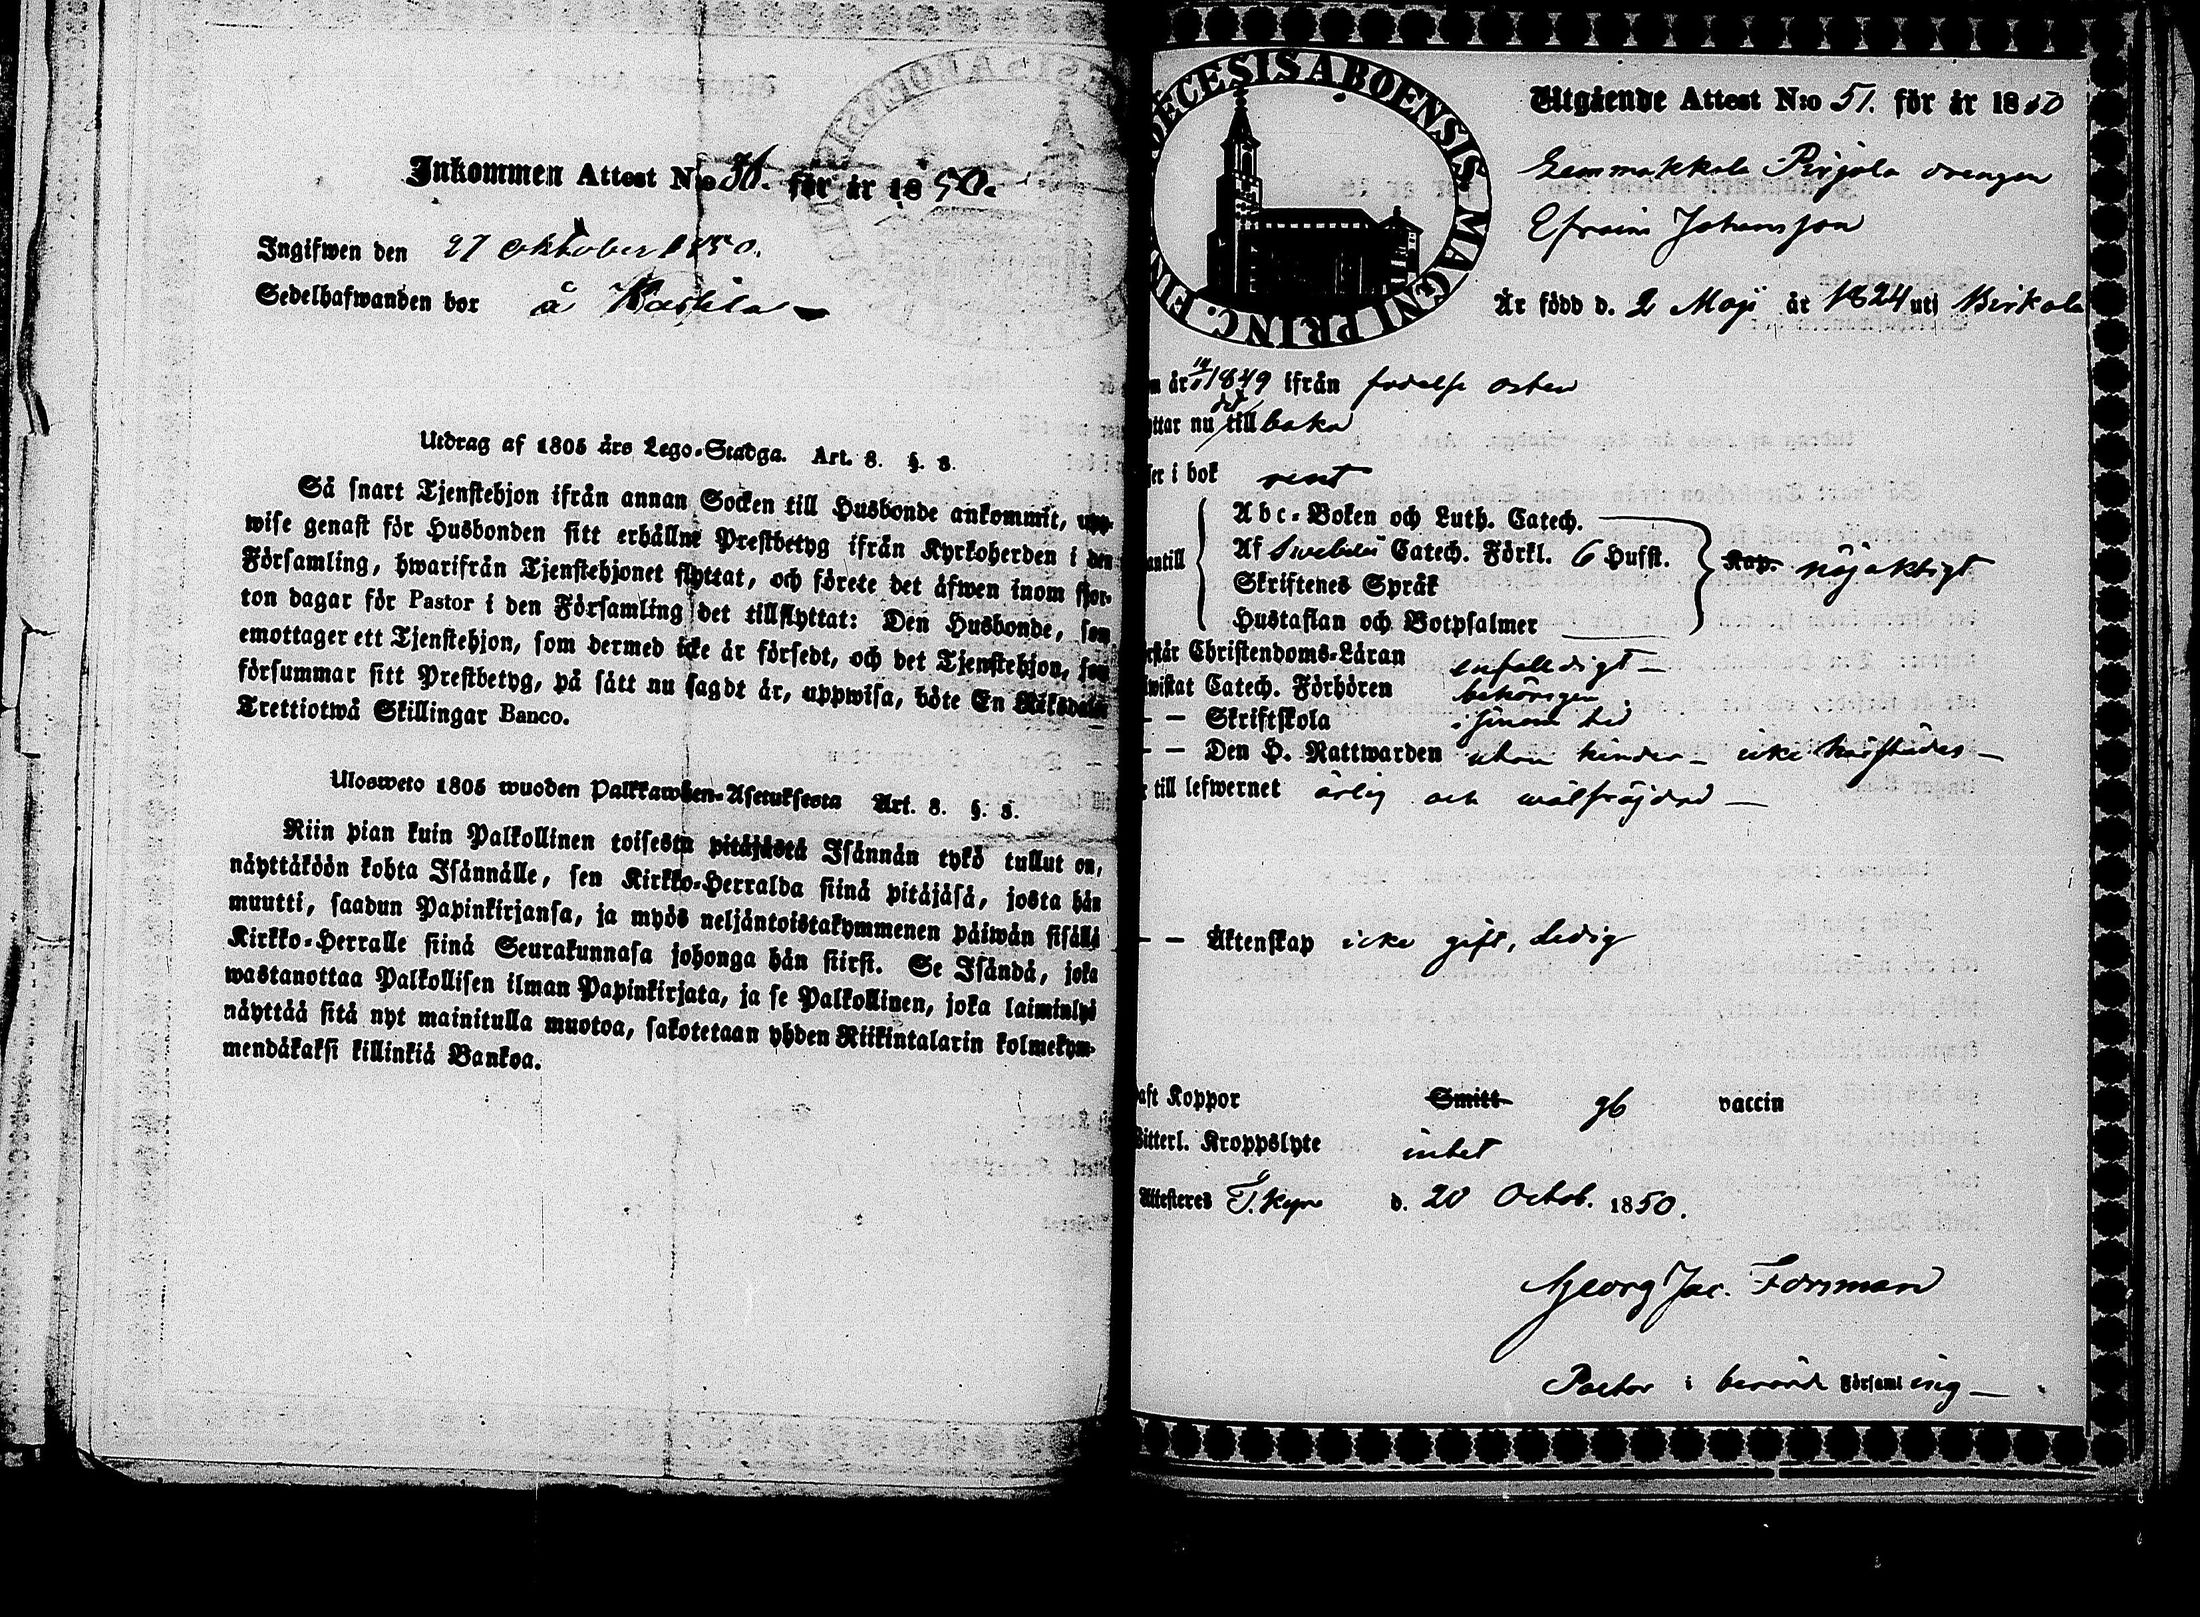 Inkommen Attest N:o 31. för år 1850.
Ingifwen den 27 oktober 1850.
Sedelhafwanden bor å
Utdrag af 1805 års Lego-Stadga. Art. 8. §. 8.
Så snart Tjenstehjon ifrån annan Socken till Husbonde ankommit, upp-
wise genast för Husbonden sitt erhållne Prestbetyg ifrån Kyrkoherden i den
Församling, hwarifrån Tjenstehjonet flyttat, och förete det äfwen inom fjor-
ton dagar för Pastor i den Församling det tillflyttat: Den Husbonde, som
emottager ett Tjenstehjon, som dermed icke är försedt, och det Tjenstehjon, som
försummar sitt Prestbetyg, på sätt nu sagdt är, uppwisa, böte En Riksdaler
Trettiotwå Skillingar Banco.
Ulosweto 1805 wuoden Palkkawäen-Asetuksesta Art. 8. §. 8.
Niin pian kuin Palkollinen toisesta pitäjästä Isännän tykö tullut on,
näyttäköön kohta Isännälle, sen Kirkko-Herralda siinä pitäjäsä, josta hän
muutti, saadun Papinkirjansa, ja myös neljäntoistakymmenen päiwän sisällä
Kirkko-Herralle siinä Seurakunnasa johonga hän siirsi. Se Isändä, joka
wastanottaa Palkollisen ilman Papinkirjata, ja se Palkollinen, joka laiminlyö
näyttää sitä nyt mainitulla muotoa, sakotetaan yhden Riikintalarin kolmekym-
mendäkaksi killinkiä Bankoa.
DŒCESIS ABOENSIS MAGNI PRINC. FIN
Utgående Attest N:o 51. för år 1850
Lemmakkala Pirjola drengen
Efraim Johansson
Är född d. 2 Maji år 1824 uti Birkala
n år 1849 ifrån födelse orten
yttar nu dit tillbaka
ser i bok rent
antill
Abc-Boken och Luth. Catech.
Af Swebelii Catech. Förkl. 6 Hufst.
Skriftenes Språk
Hustaflan och Botpsalmer
nöjaktigt
rstår Christendoms-Läran enfalldigt
wistat Catech. Förhören behörigen
— — Skriftskola i sinom tid
— — Den H. Nattwarden utan hinder – icke
r till lefwernet ärlig och wälfräjdad —
— — Äktenskap icke gift, ledig
aft Koppor Smitt gb vaccin
Witterl. Kroppslyte intet
Attesteres T. Kyro d. 20 Octob. 1850.
Georg Jac. Forsman
Pastor i berörde Församling —